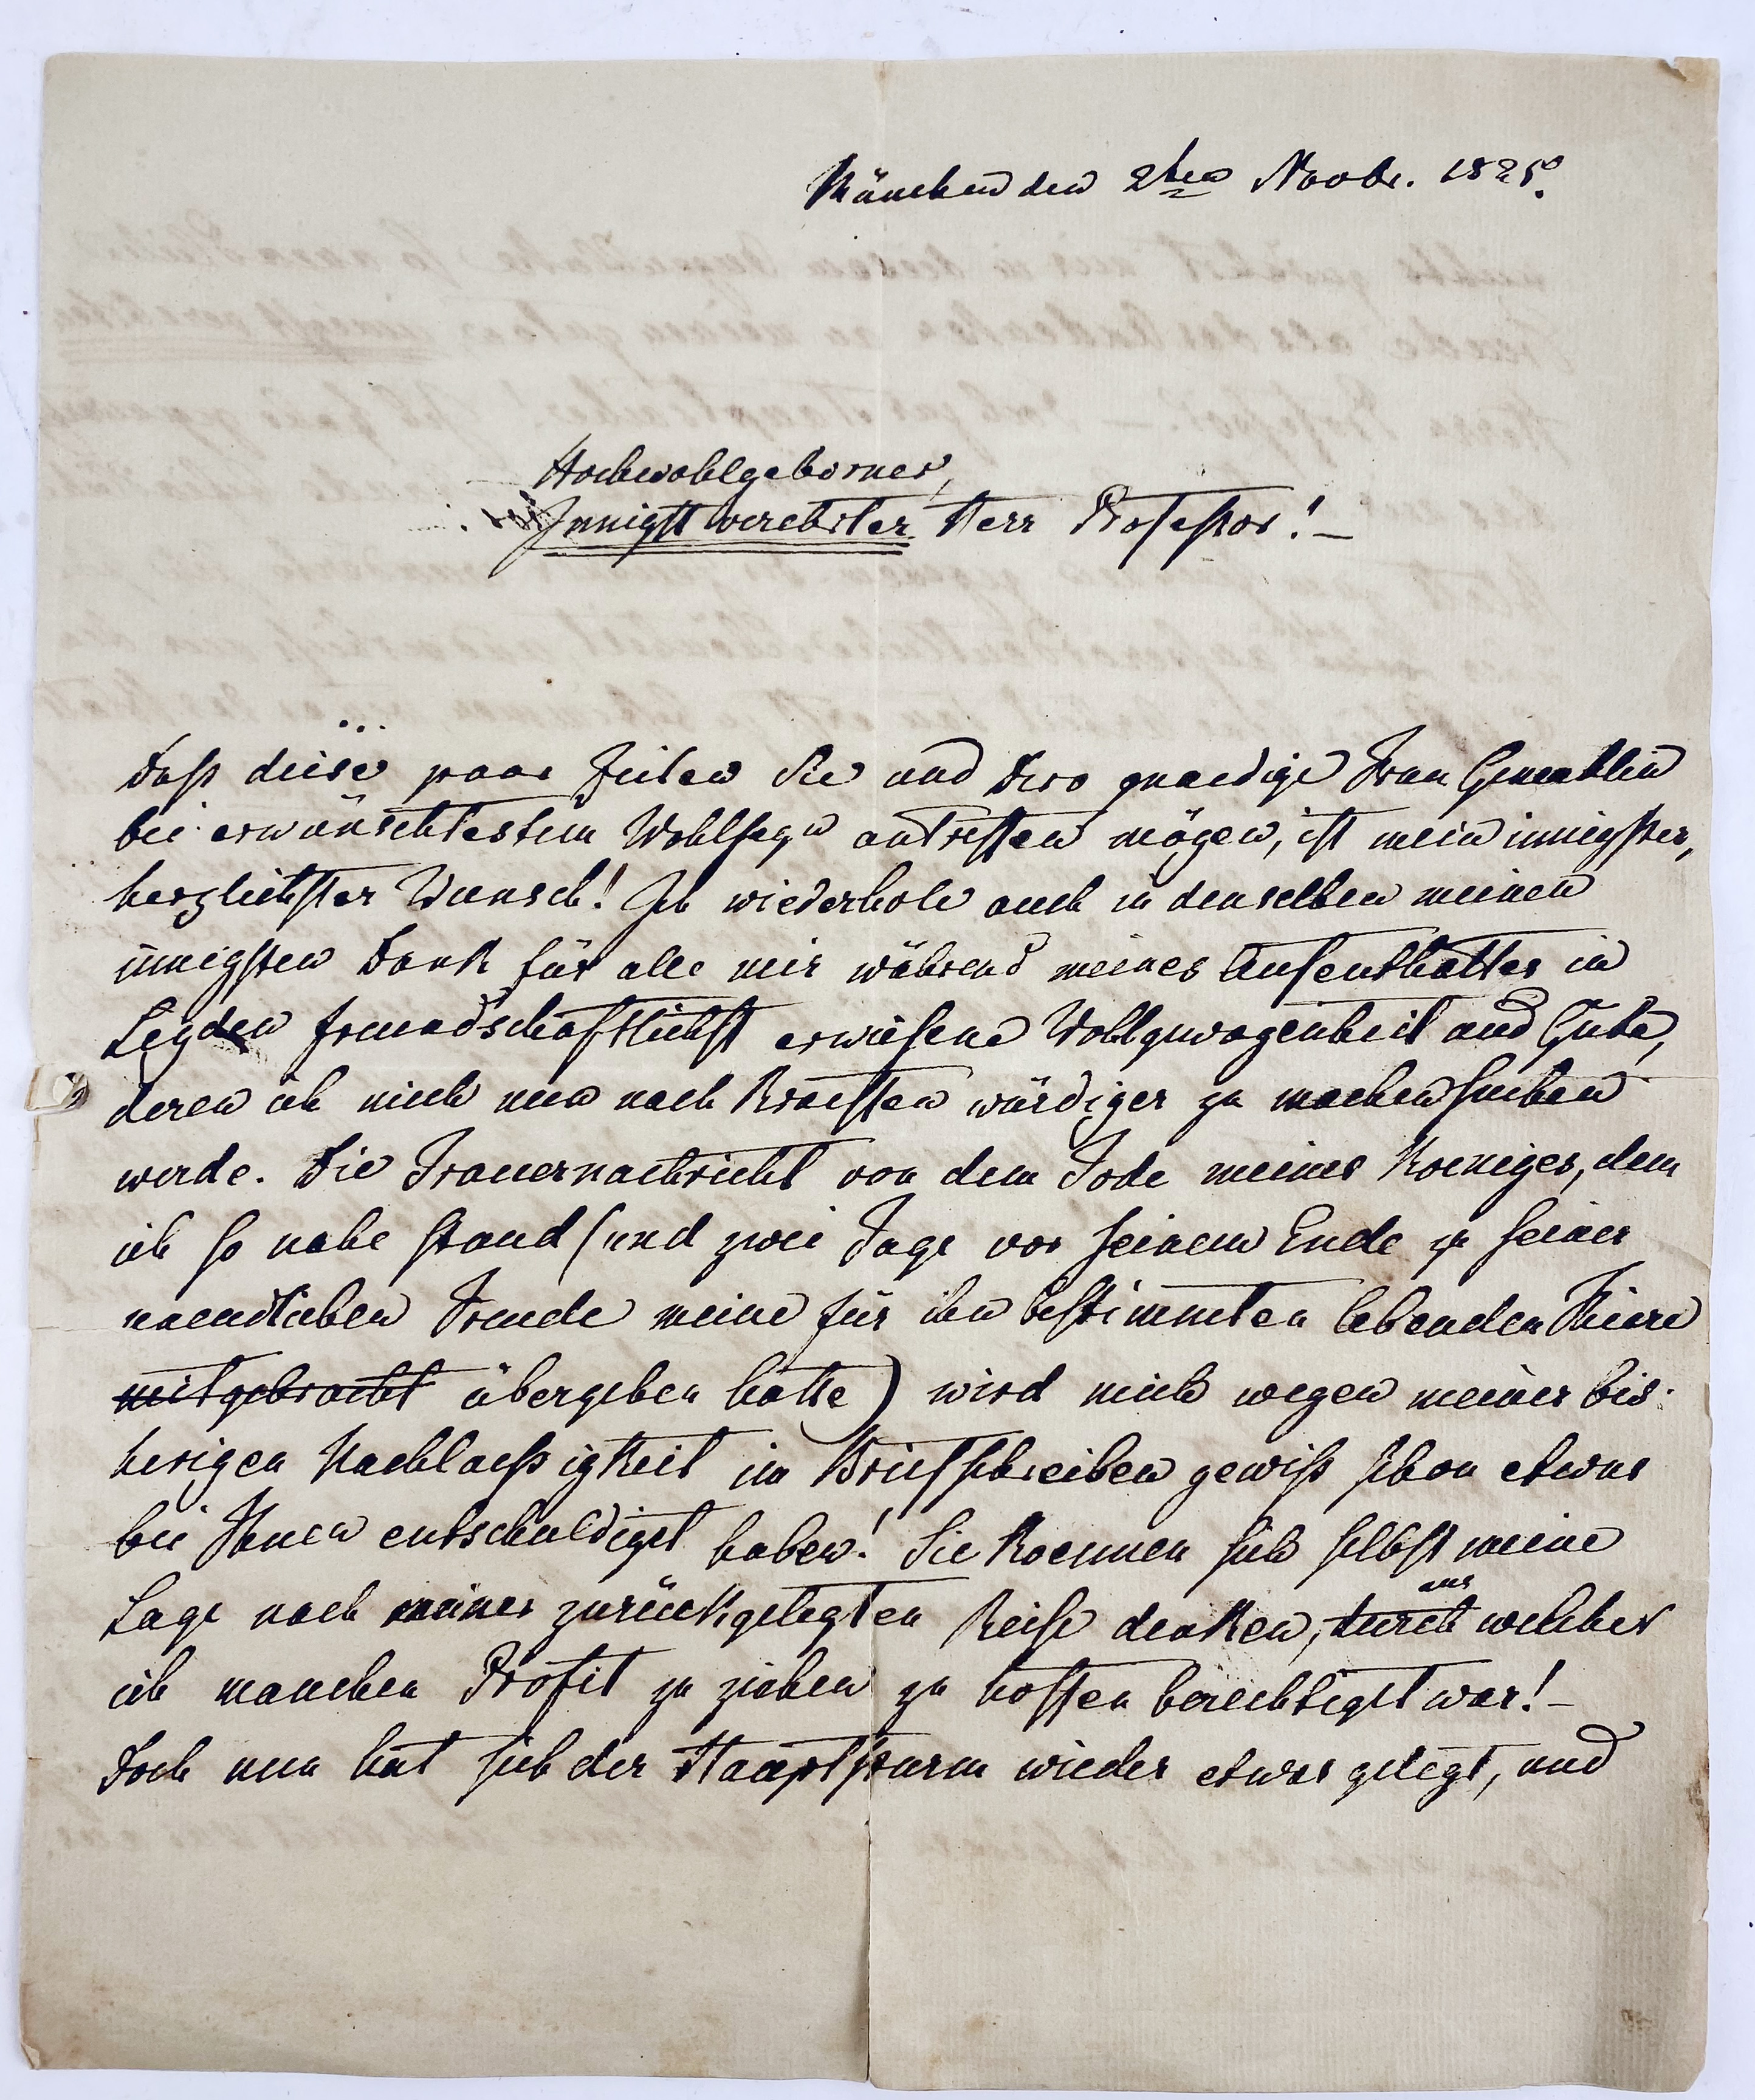 München den 2ten Novbr. 1825.
Hochwohlgeborner,
Innigst verehrter Herr Professor! –
Daß diese paar Zeilen Sie und Dero gnaedige Frau Gemahlin
bei erwünschtestem Wohlseyn antreffen mögen, ist mein innigster,
herzlichster Wunsch! Ich wiederhole auch in denselben meinen
innigsten Dank für alle mir während meines Aufenthaltes in
Leyden freundschaftlichst erwiesene Wohlgewogenheit und Güte,
deren ich mich nun nach Kraeften würdiger zu machen suchen
werde. Die Trauernachricht von dem Tode meines Koeniges, dem
ich so nahe stand (und zwei Tage vor seinem Ende zu seiner
unendlichen Freude meine für ihn bestimmten lebenden Thiere
mitgebracht übergeben hatte) wird mich wegen meiner bis-
herigen Nachlaeßigkeit im Briefschreiben gewiß schon etwas
bei Ihnen entschuldiget haben! Sie koennen sich selbst meine
Lage nach meiner zurückgelegten Reise denken, durch aus welcher
ich manchen Profit zu ziehen zu hoffen berechtiget war! –
Doch nun hat sich der Hauptsturm wieder etwas gelegt, und